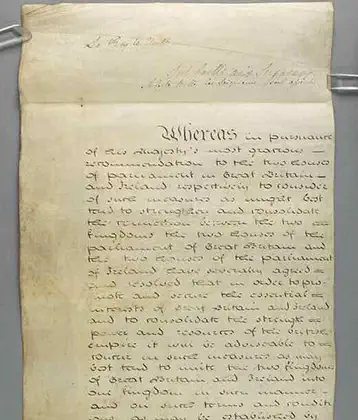 Le Roy le Veult
Whereas in pursuance
of his Majesty's most gracious
recommendation to the two houses
of parliament in Great Britain
and Ireland respectively to consider
of such measures as might best
tend to strengthen and consolidate
the connection between the two
kingdoms the two houses of the
parliament of Great Britain and
the two houses of the parliament
of Ireland have severally agreed
and resolved that in order to pro-
mote and secure the essential
interests of Great Britain and Ireland
and to consolidate the strength
power and resources of the British
empire it will be adviseable to
concur in such measures as may
best tend to unite the two kingdoms
of Great Britain and Ireland into
one kingdom in such manner
and on such terms and conditi
ons as may be established by